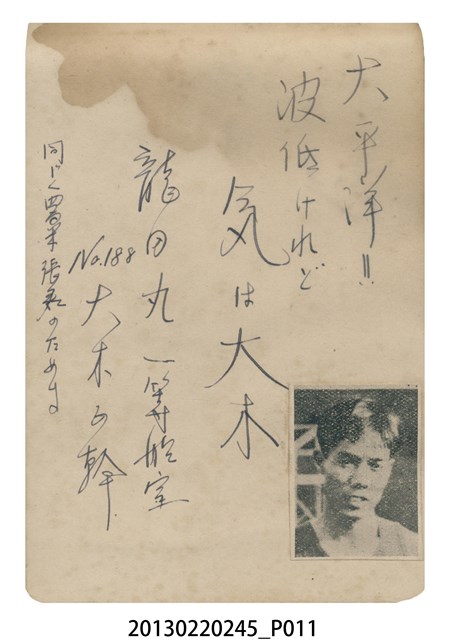 大平洋!!
波低けれど
気は大木
龍田丸一等船室
No.188 大木正幹
同じく
張君のために
20130220245_P011